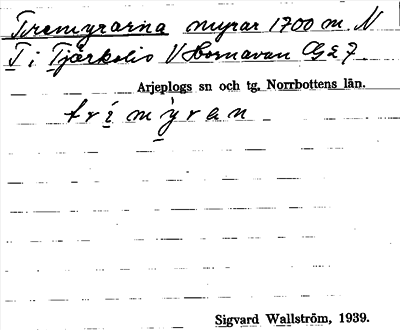 Tremyrarna myrar 1700 m. N
T i Tjärkolis V Hornavan G 2 7.
Arjeplogs sn och tg. Norrbottens län.
tri̱mỳ̱ran
Sigvard Wallström, 1939.